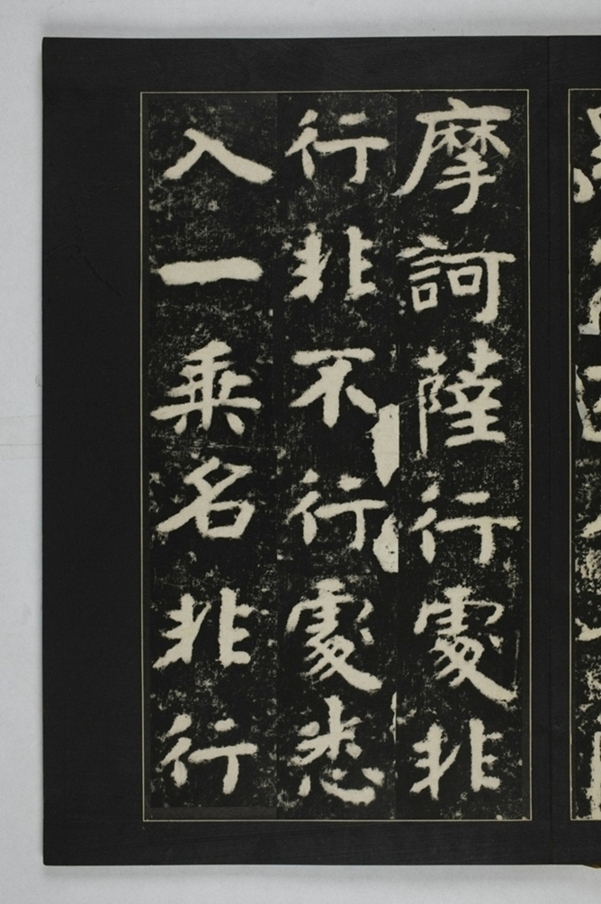 摩訶薩行處非
行非不行處悉
入一乗名非行